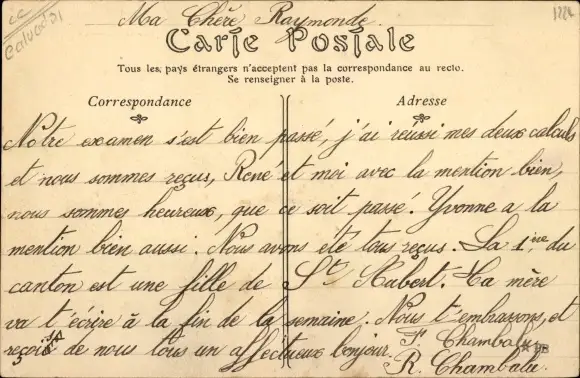 Ma Chère Raymonde.
Calvados
Carte Postale
Tous les pays étrangers n'acceptent pas la correspondance au recto.
Se renseigner à la poste.
Correspondance
Adresse
Notre examen s'est bien passé, j'ai réussi mes deux calculs
et nous sommes reçus, René et moi avec la mention bien,
nous sommes heureux, que ce soit passé. Yvonne a la
mention bien aussi. Nous avons été tous reçus. La 1ière du
canton est une fille de St Habert. Ta mère
va t'écrire à la fin de la semaine. Nous t'embrassons, et
reçois de nous tous un affectueux bonjour.
F. Chambalu
R. Chambalu.